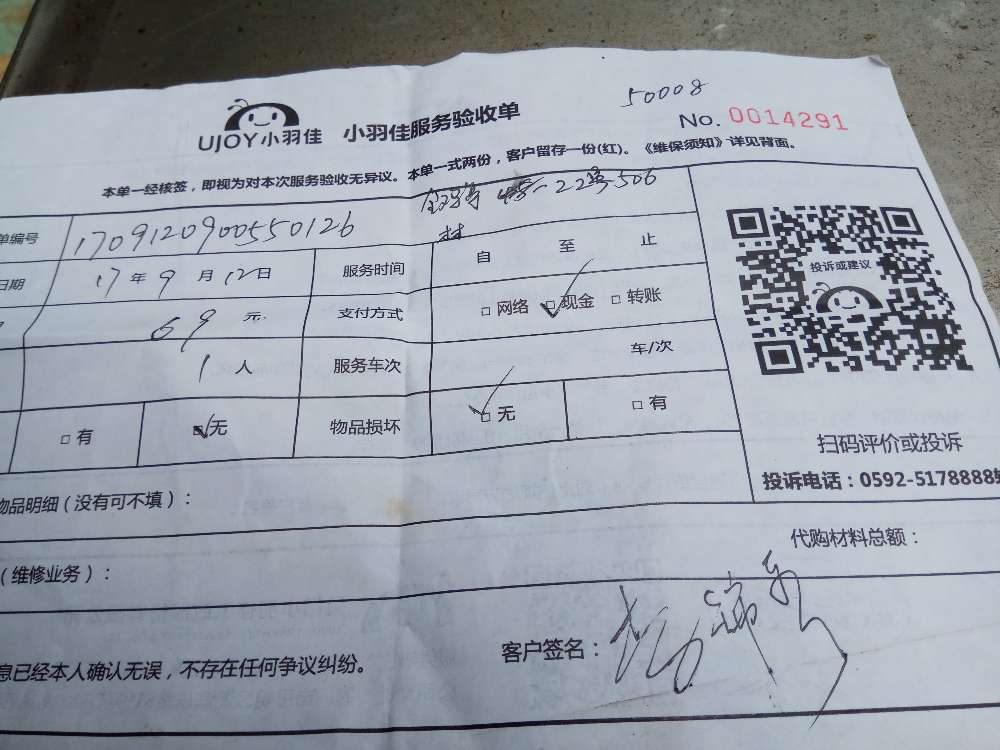 50008
UJOY小羽佳 小羽佳服务验收单 No. 0014291
本单一经核签，即视为对本次服务验收无异议。本单一式两份，客户留存一份(红)。《维保须知》详见背面。
22号506
村
单编号 170912090055０126
日期 17年9月12日 服务时间 自 至 止
69元 支付方式 □网络 □现金 □转账
1人 服务车次 车/次
□有 □无 物品损坏 □无 □有
投诉或建议
扫码评价或投诉
投诉电话：0592-5178888
物品明细（没有可不填）：
代购材料总额：
（维修业务）：
息已经本人确认无误，不存在任何争议纠纷。 客户签名：